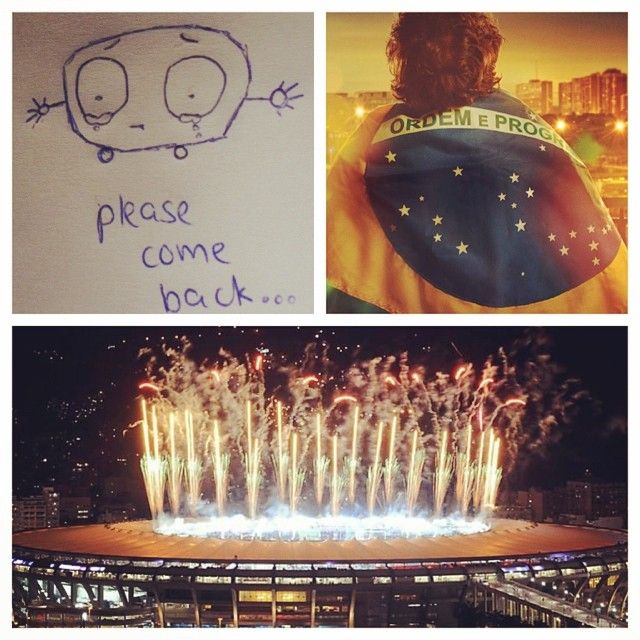 please
come
back...
ORDEM E PROG